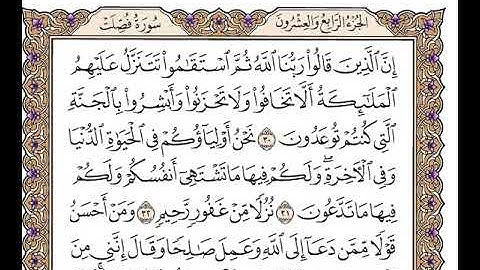 الجزء الرابع والعشرون
سورة فصلت
إِنَّ ٱلَّذِينَ قَالُوا۟ رَبُّنَا ٱللَّهُ ثُمَّ ٱسْتَقَـٰمُوا۟ تَتَنَزَّلُ عَلَيْهِمُ
ٱلْمَلَـٰٓئِكَةُ أَلَّا تَخَافُوا۟ وَلَا تَحْزَنُوا۟ وَأَبْشِرُوا۟ بِٱلْجَنَّةِ
ٱلَّتِى كُنتُمْ تُوعَدُونَ ٣٠ نَحْنُ أَوْلِيَآؤُكُمْ فِى ٱلْحَيَوٰةِ ٱلدُّنْيَا
وَفِى ٱلْـَٔاخِرَةِ ۖ وَلَكُمْ فِيهَا مَا تَشْتَهِىٓ أَنفُسُكُمْ وَلَكُمْ
فِيهَا مَا تَدَّعُونَ ٣١ نُزُلًا مِّنْ غَفُورٍ رَّحِيمٍ ٣٢ وَمَنْ أَحْسَنُ
قَوْلًا مِّمَّن دَعَآ إِلَى ٱللَّهِ وَعَمِلَ صَـٰلِحًا وَقَالَ إِنَّنِى مِنَ